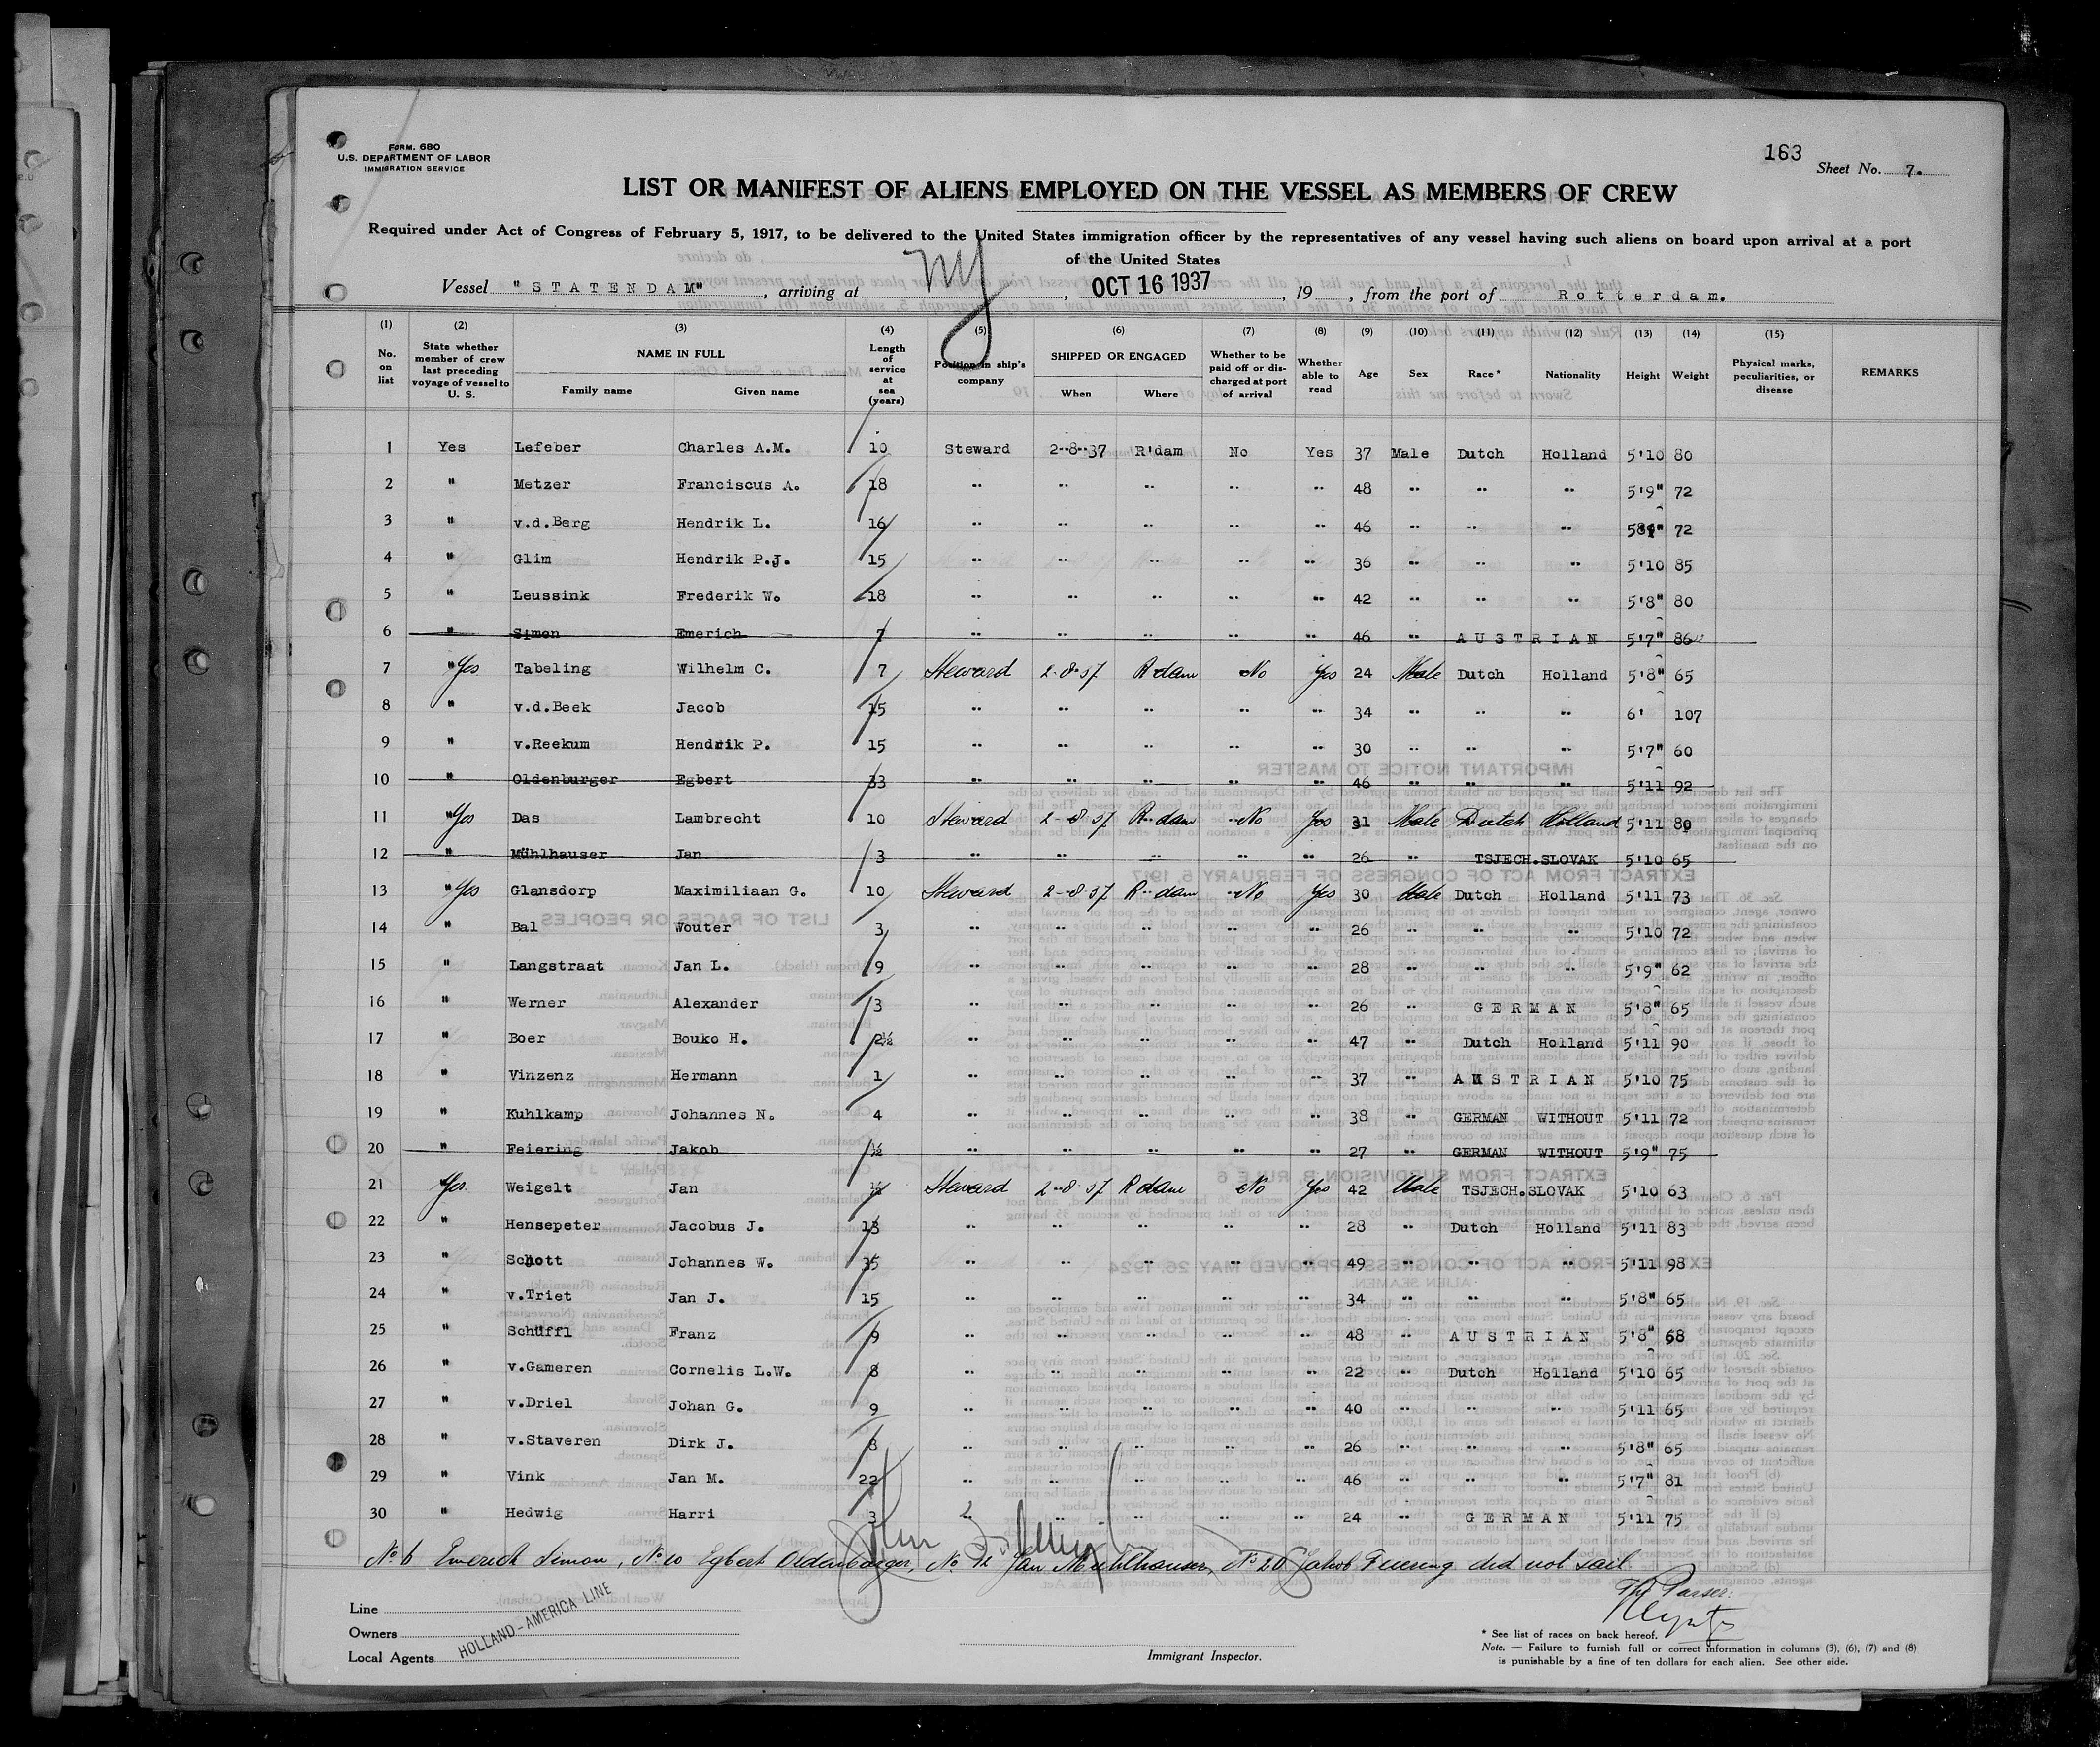 FORM. 680
U.S. DEPARTMENT OF LABOR
IMMIGRATION SERVICE
163
Sheet No. 7.
LIST OR MANIFEST OF ALIENS EMPLOYED ON THE VESSEL AS MEMBERS OF CREW
Required under Act of Congress of February 5, 1917, to be delivered to the United States immigration officer by the representatives of any vessel having such aliens on board upon arrival at a port
of the United States
Vessel "STATENDAM", arriving at NY, OCT 16 1937, 19, from the port of Rotterdam.
(1) (2) (3) (4) (5) (6) (7) (8) (9) (10) (11) (12) (13) (14) (15)
No. on list State whether member of crew last preceding voyage of vessel to U. S. NAME IN FULL Family name Given name Length of service at sea (years) Position in ship's company SHIPPED OR ENGAGED When Where Whether to be paid off or discharged at port of arrival Whether able to read Age Sex Race* Nationality Height Weight Physical marks, peculiarities, or disease REMARKS
1 Yes Lefeber Charles A.M. 10 Steward 2-8-37 R'dam No Yes 37 Male Dutch Holland 5'10 80
2 " Metzer Franciscus A. 18 " " " " " 48 " " " 5'9" 72
3 " v.d.Berg Hendrik L. 16 " " " " " 46 " " " 72
4 " Glim Hendrik P.J. 15 " " " " " 36 " " " 5'10 85
5 " Leussink Frederik W. 18 " " " " " 42 " " " 5'8" 80
6 " Simon Emerich 7 " " " " " 46 " AUSTRIAN 5'7" 86
7 " Yes Tabeling Wilhelm C. 7 Steward 2-8-37 R'dam No Yes 24 Male Dutch Holland 5'8" 65
8 " v.d.Beek Jacob 15 " " " " " 34 " " " 6' 107
9 " v.Reekum Hendrik P. 15 " " " " " 30 " " " 5'7" 60
10 " Oldenburger Egbert 33 " " " " " 46 " " " 5'11 92
11 " Yes Das Lambrecht 10 Steward 2-8-37 R'dam No Yes 31 Male Dutch Holland 5'11 80
12 " Mühlhauser Jan 3 " " " " " 26 " TSJECH.SLOVAK 5'10 65
13 " Yes Glansdorp Maximiliaan G. 10 Steward 2-8-37 R'dam No Yes 30 Male Dutch Holland 5'11 73
14 " Bal Wouter 3 " " " " " 26 " " " 5'10 72
15 " Langstraat Jan L. 9 " " " " " 28 " " " 5'9" 62
16 " Werner Alexander 3 " " " " " 26 " GERMAN 5'8" 65
17 " Boer Bouko H. 2½ " " " " " 47 " Dutch Holland 5'11 90
18 " Vinzenz Hermann 1 " " " " " 37 " AUSTRIAN 5'10 75
19 " Kuhlkamp Johannes N. 4 " " " " " 38 " GERMAN WITHOUT 5'11 72
20 " Feiering Jakob ½ " " " " " 27 " GERMAN WITHOUT 5'9" 75
21 " Yes Weigelt Jan ½ Steward 2-8-37 R'dam No Yes 42 Male TSJECH.SLOVAK 5'10 63
22 " Hensepeter Jacobus J. 13 " " " " " 28 " Dutch Holland 5'11 83
23 " Schott Johannes W. 35 " " " " " 49 " " " 5'11 98
24 " v.Triet Jan J. 15 " " " " " 34 " " " 5'8" 65
25 " Schüffl Franz 9 " " " " " 48 " AUSTRIAN 5'8" 68
26 " v.Gameren Cornelis L.W. 8 " " " " " 22 " Dutch Holland 5'10 65
27 " v.Driel Johan G. 9 " " " " " 40 " " " 5'11 65
28 " v.Staveren Dirk J. 8 " " " " " 26 " " " 5'8" 65
29 " Vink Jan M. 22 " " " " " 46 " " " 5'7" 81
30 " Hedwig Harri 3 " " " " " 24 " GERMAN 5'11 75
No 6 Emerich Simon, No 10 Egbert Oldenburger, No 12 Jan Mühlhauser, No 20 Jakob Feiering did not sail
The Purser:
Line
Owners
Local Agents
HOLLAND-AMERICA LINE
Immigrant Inspector.
* See list of races on back hereof.
Note. — Failure to furnish full or correct information in columns (3), (6), (7) and (8)
is punishable by a fine of ten dollars for each alien. See other side.